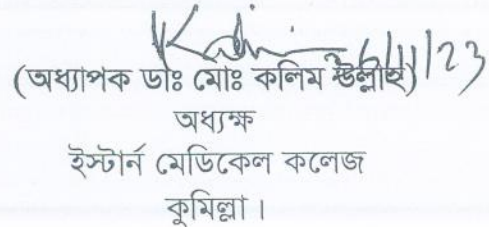 6/11/23
(অধ্যাপক ডাঃ মোঃ কলিম উল্লাহ)
অধ্যক্ষ
ইস্টার্ন মেডিকেল কলেজ
কুমিল্লা।